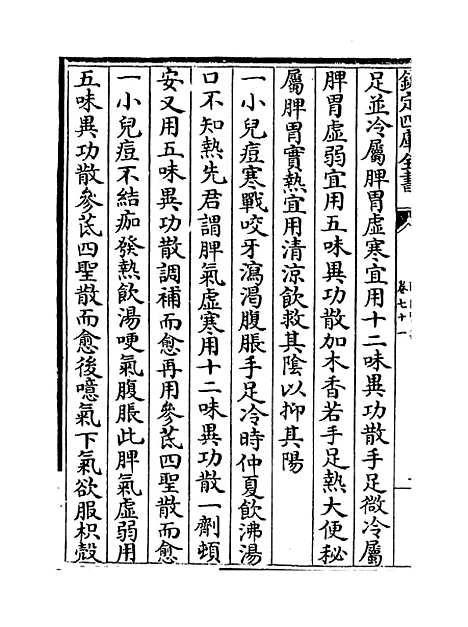 欽定四庫全書
卷七十一
足並冷屬脾胃虛寒宜用十二味異功散手足微冷屬
脾胃虛弱宜用五味異功散加木香若手足熱大便秘
屬脾胃實熱宜用清涼飲救其陰以抑其陽
一小兒痘寒戰咬牙瀉渴腹脹手足冷時仲夏飲沸湯
口不知熱先君謂脾氣虛寒用十二味異功散一劑頓
安又用五味異功散調補而愈再用參芪四聖散而愈
一小兒痘不結痂發熱飲湯哽氣腹脹此脾氣虛弱用
五味異功散參芪四聖散而愈後噫氣下氣欲服枳殼